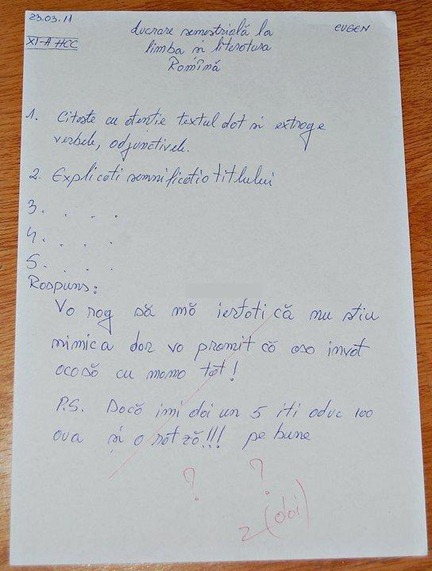 23.03.11
XI-A HCC
EUGEN
Lucrare semestrială la
limba și literatura
Romînă
1. Citește cu atenție textul dat și extrage
verbele, adjunctivele.
2. Explicati semnificatia titlului
3. . . . .
4. . . . .
5. . . . .
Raspuns:
Vo rog să mă iertati că nu știu
nimica dar va promit că asa invat
acasă cu mama tot!
P.S. Dacă imi dai un 5 iti aduc 100
oua și o rață!!! pe bune
? ?
2 (doi)